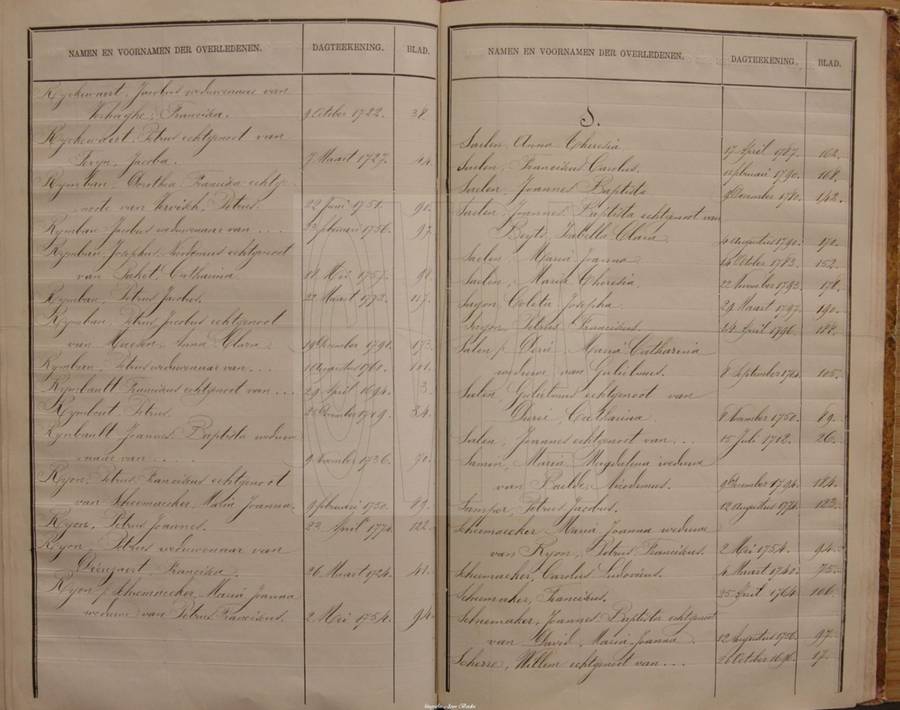 NAMEN EN VOORNAMEN DER OVERLEDENEN. DAGTEEKENING. BLAD.
Ryckewaert, Jacobus weduwenaar van
Verhaghe, Francisca. 9 October 1722. 38.
Ryckewaert, Petrus echtgenoot van
Jacoba. 7 Maart 1727. 44.
Rymbau, Dorothea Francisca echtge-
noote van Vervisch, Petrus. 22 Juni 1751. 90.
Rymbau, Jacobus weduwenaar van ... 22 februari 1756. 97.
Rymbau, Josephus echtgenoot
van Catharina 18 Mei 1757. 98.
Rymbau, Petrus Jacobus. 22 Maart 1772. 117.
Rymbau, Petrus Jacobus echtgenoot
van Anna Clara. 19 December 1791. 173.
Rymbau, Petrus weduwenaar van ... Augustus 1760. 101.
Rymbault, Franciscus echtgenoot van ... 29 April 1694. 3.
Rymbout, Petrus. December 1719. 34.
Rynbault, Joannes Baptista weduwe-
naar van ... 9 November 1736. 70.
Ryon, Petrus Franciscus echtgenoot
van Scheemaecker, Maria Joanna. 9 februari 1750. 89.
Ryon, Petrus Joannes. 23 April 1774. 122.
Ryon, Petrus weduwenaar van
Francisca. 26 Maart 1724. 41.
Ryon / Scheemaecker, Maria Joanna
weduwe van Petrus Franciscus. 2 Mei 1754. 94.
NAMEN EN VOORNAMEN DER OVERLEDENEN. DAGTEEKENING. BLAD.
S.
Saelen, Anna Theresia 17 April 1787. 162.
Saelen, Franciscus Carolus. februari 1790. 168.
Saelen, Joannes Baptista December 1780. 142.
Saelen, Joannes Baptista echtgenoot van
Isabella Clara 4 Augustus 1790. 170.
Saelen, Maria Joanna 14 October 1783. 152.
Saelen, Maria Theresia 22 November 1793. 178.
Sagon, Coleta Josepha. 29 Maart 1797. 190.
Sagon, Petrus Franciscus. 14 April 1796. 188.
Salen / Maria Catharina
weduwe van Gulielmus. 8 September 1764. 105.
Salen, Gulielmus echtgenoot van
Catharina 8 November 1750. 89.
Salen, Joannes echtgenoot van ... 15 Juli 1712. 26.
Samin, Maria Magdalena weduwe
van Nicodemus. 9 December 1794. 184.
Samper, Petrus Jacobus. 12 Augustus 1774. 123.
Scheemaecker, Maria Joanna weduwe
van Ryon, Petrus Franciscus. 2 Mei 1754. 94.
Schemaeker, Carolus Ludovicus. 4 Maart 1740. 75.
Schemaker, Franciscus. 25 Juli 1764. 106.
Schemaker, Joannes Baptista echtgenoot
van David, Maria Joanna. 12 Augustus 1756. 97.
Scherre, Willem echtgenoot van ... 26 October 1696. 17.